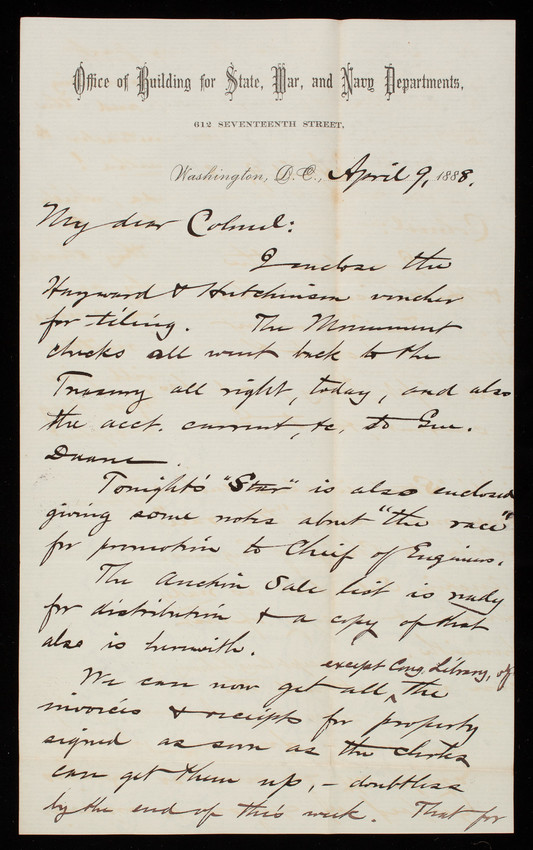 Office of Building for State, War, and Navy Departments,
612 SEVENTEENTH STREET,
Washington, D.C., April 9, 1888.
My dear Colonel:
I enclose the
Hayward & Hutchinson voucher
for tiling. The Monument
checks all went back to the
Treasury all right, today, and also
the acct. current, &c, to Gen.
Duane.
Tonight's "Star" is also enclosed
giving some notes about "the race"
for promotion to Chief of Engineers.
The Auction Sale list is ready
for distribution & a copy of that
also is herewith.
except Cong. Library,
We can now get all ^ the
invoices & receipts for property
signed as soon as the clerks
can get them up, - doubtless
by the end of this week. That for